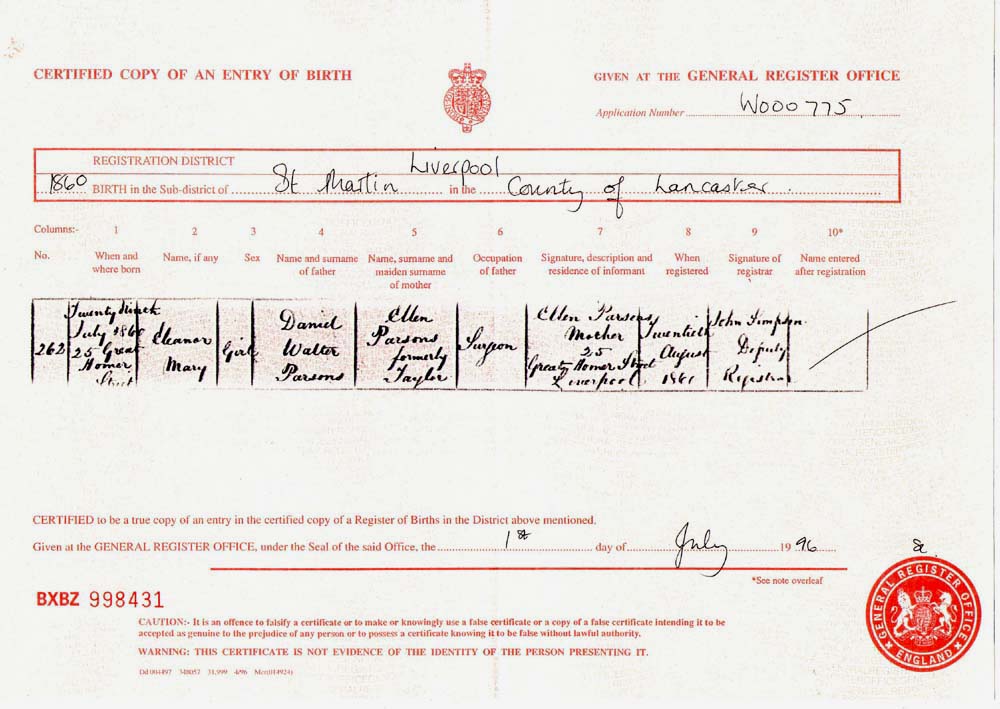 CERTIFIED COPY OF AN ENTRY OF BIRTH
GIVEN AT THE GENERAL REGISTER OFFICE
Application Number W000775
REGISTRATION DISTRICT Liverpool
1860 BIRTH in the Sub-district of St Martin in the County of Lancaster.
Columns:- 1 2 3 4 5 6 7 8 9 10*
No. When and where born Name, if any Sex Name and surname of father Name, surname and maiden surname of mother Occupation of father Signature, description and residence of informant When registered Signature of registrar Name entered after registration
262
Twenty Ninth
July 1860
25 Great
Homer
Street
Eleanor
Mary
Girl
Daniel
Walter
Parsons
Ellen
Parsons
formerly
Taylor
Surgeon
Ellen Parsons
Mother
25
Great Homer Street
Liverpool
Twentieth
August
John Simpson
Deputy
Registrar
CERTIFIED to be a true copy of an entry in the certified copy of a Register of Births in the District above mentioned.
Given at the GENERAL REGISTER OFFICE, under the Seal of the said Office, the 1st day of July 1996
*See note overleaf
BXBZ 998431
CAUTION:- It is an offence to falsify a certificate or to make or knowingly use a false certificate or a copy of a false certificate intending it to be
accepted as genuine to the prejudice of any person or to possess a certificate knowing it to be false without lawful authority.
WARNING: THIS CERTIFICATE IS NOT EVIDENCE OF THE IDENTITY OF THE PERSON PRESENTING IT.
GENERAL REGISTER OFFICE
ENGLAND